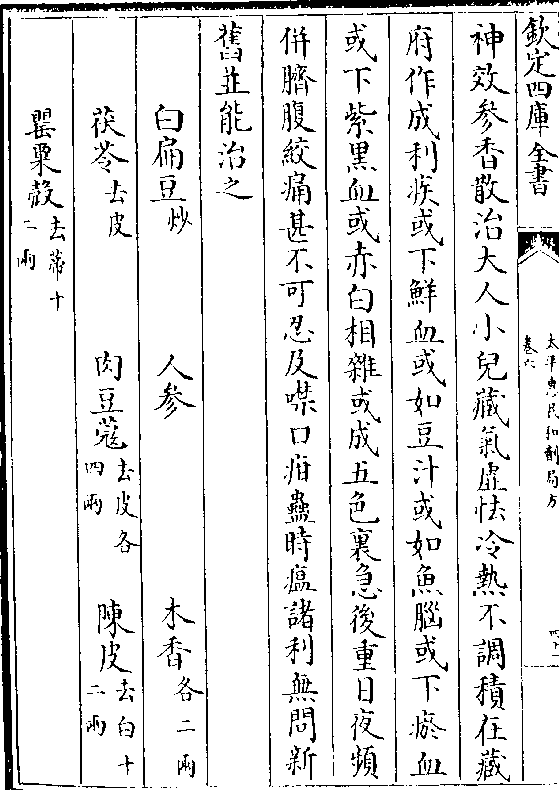 欽定四庫全書
太平惠民和劑局方
卷六
神效參香散治大人小兒藏氣虛怯冷熱不調積在藏
府作成利疾或下鮮血或如豆汁或如魚腦或下瘀血
或下紫黑血或赤白相雜或成五色裏急後重日夜頻
併臍腹絞痛甚不可忍及噤口疳蠱時瘟諸利無問新
舊並能治之
白扁豆炒 人參 木香各二兩
茯苓去皮 肉豆蔻去皮各四兩 陳皮去白十二兩
罌粟殻去蒂十二兩